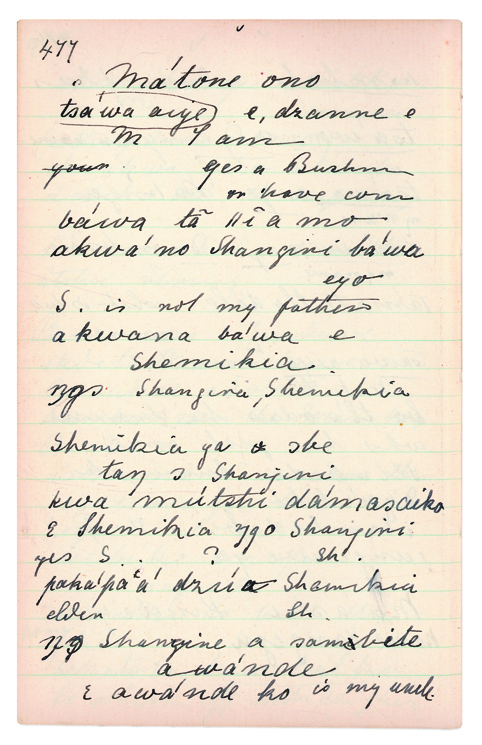 477
Mátone ono
tsáwa aiye) e, dzanne e
M I am
your yes a Bushm
or have com
báwa tã ||ĩ a mo
akwá no Shangini báwa
eyo
S. is not my father
akwana báwa e
Shemikia
ngo Shangini, Shemikia
Shemikia ga sbe
tay s Shangini
kwa mútshi dámasaiko
E Shemikia ngo Shangini
yes S. . ? Sh.
paka'pa'á dzúa Shemikia
elder Sh.
ngo Shangine a sambéte
awánde
E awánde ko is my uncle.